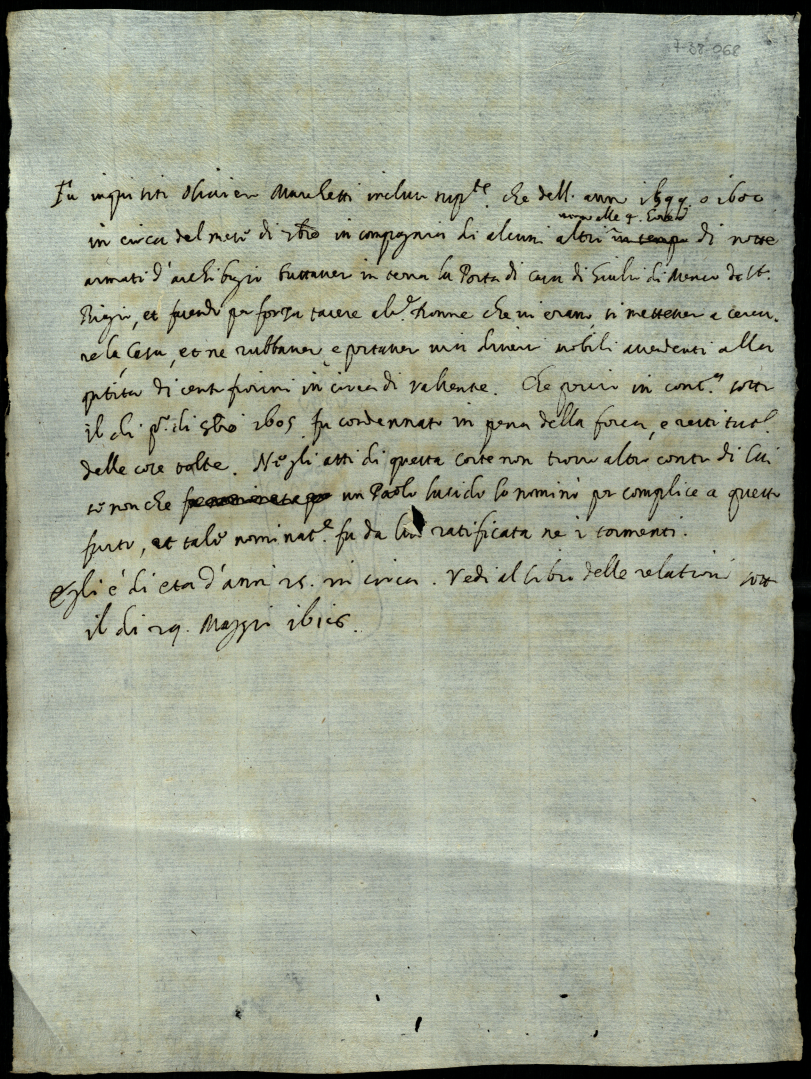 7-28-068
Fu inquisiti Olivier Marchetti inclus supte. che dell. anno 1599. o 1600
in circa del mese di 7bre in compagnia di alcuni altri in tempo di notte
armati d'archibugio buttaver in terra la Porta di casa di Giulio di Menco da
et facendo per forza tacere alc.e donne che vi erano, si metteser a cerca-
re la Casa, et ne rubbaver, e portaver via diversi mobili ascendenti alla
qutita di cento fiorini in circa di valiente. Che perciò in cont.a sotto
il di p.o di 1605. fu condennato in pena della forca, e restitut.e
delle cose tolte. Ne gli atti di questa corte non trovo altro contro di lui
se non che un Paolo lo nominò per complice a questo
furto, et tale nominat.e fu da lui ratificata ne i tormenti.
Egli é di eta d'anni 25. in circa. Vedi al libro delle relationi sotto
il di 29. Maggio 1616.